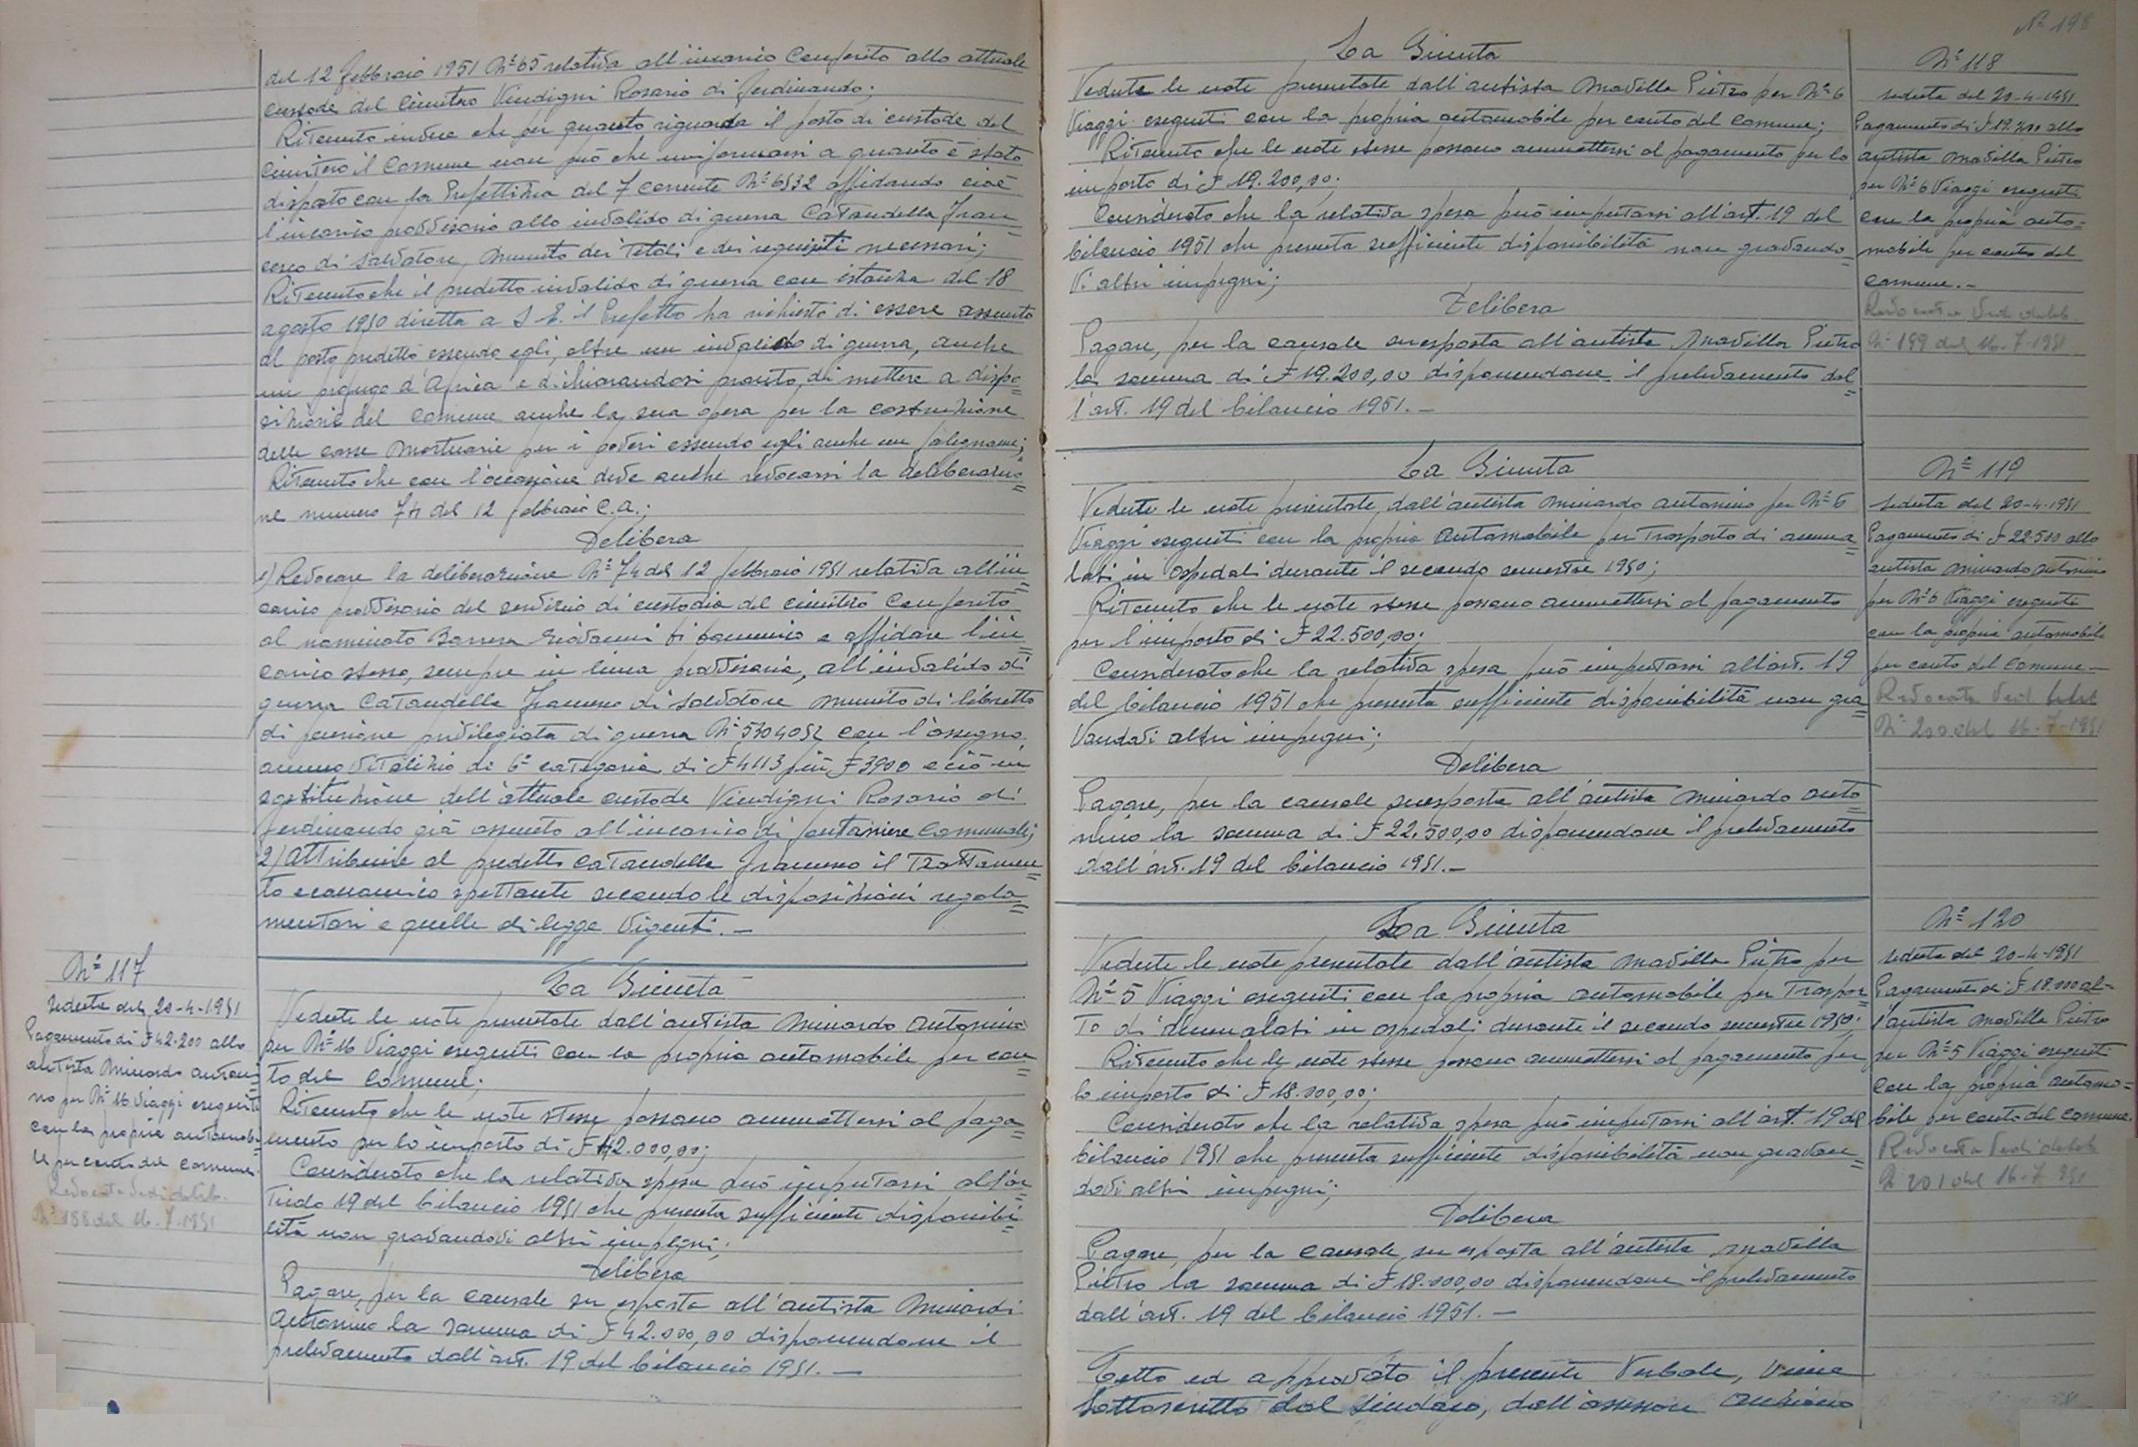 del 12 febbraio 1951 N° 65 relativa all'incarico conferito allo attuale
custode del Cimitero Vindigni Rosario di Ferdinando;
Ritenuto inoltre che per quanto riguarda il posto di custode del
Cimitero il Comune non può che uniformarsi a quanto è stato
disposto con la Prefettizia del 7 corrente N° 6532 affidando cioè
l'incarico provvisorio allo invalido di guerra Cataudella Fran=
cesco di Salvatore, munito dei titoli e dei requisiti necessari;
Ritenuto che il predetto invalido di guerra con istanza del 18
agosto 1950 diretta a S. E. il Prefetto ha richiesto di essere assunto
al posto predetto essendo egli, oltre un invalido di guerra, anche
un profugo d'Africa e dichiarandosi pronto di mettere a dispo=
sizione del Comune anche la sua opera per la costruzione
delle casse mortuarie per i poveri essendo egli anche un falegname;
Ritenuto che con l'occasione deve anche revocarsi la deliberazio=
ne numero 74 del 12 febbraio c.a.;
Delibera
1) Revocare la deliberazione N° 74 del 12 febbraio 1951 relativa all'in=
carico provvisorio del servizio di custodia del cimitero conferito
al nominato Barrera Giovanni di e affidare l'in=
carico stesso, sempre in linea provvisoria, all'invalido di
guerra Cataudella Francesco di Salvatore munito di libretto
di pensione privilegiata di guerra N° 5304052 con l'assegno
annuo vitalizio di 6ª categoria di £ 4113 più £ 3900 e ciò in
sostituzione dell'attuale custode Vindigni Rosario di
Ferdinando già assunto all'incarico di fontaniere comunale;
2) Attribuire al predetto Cataudella Francesco il trattamen=
to economico spettante secondo le disposizioni regola=
mentari e quelle di legge vigenti.-
N° 117
seduta del 20-4-1951
Pagamento di £ 42.200 allo
autista Minardo Antoni=
no per N° 16 Viaggi eseguiti
con la propria automobi=
le per conto del Comune.
Revocata Vedi delib.
N° 188 del 16-7-1951
La Giunta
Vedute le note presentate dall'autista Minardo Antonino
per N° 16 Viaggi eseguiti con la propria automobile per con=
to del Comune;
Ritenuto che le note stesse possono ammettersi al paga=
mento per lo importo di £ 42.000,00;
Considerato che la relativa spesa può imputarsi all'ar=
ticolo 19 del bilancio 1951 che presenta sufficiente disponibi=
lità non gravandovi altri impegni;
Delibera
Pagare, per la causale su esposta all'autista Minardi
Antonino la somma di £ 42.000,00 disponendone il
prelevamento dall'art. 19 del bilancio 1951.-
N° 198
La Giunta
Vedute le note presentate dall'autista Mavilla Pietro per N° 6
Viaggi eseguiti con la propria automobile per conto del Comune;
Ritenuto che le note stesse possono ammettersi al pagamento per lo
importo di £ 19.200,00;
Considerato che la relativa spesa può imputarsi all'art. 19 del
bilancio 1951 che presenta sufficiente disponibilità non gravando=
vi altri impegni;
Delibera
Pagare, per la causale su esposta all'autista Mavilla Pietro
la somma di £ 19.200,00 disponendone il prelevamento dal=
l'art. 19 del bilancio 1951.-
N° 118
seduta del 20-4-1951
Pagamento di £ 19.200 allo
autista Mavilla Pietro
per N° 6 Viaggi eseguiti
con la propria auto=
mobile per conto del
Comune.-
Revocata Vedi delib.
N° 199 del 16-7-1951
La Giunta
Vedute le note presentate dall'autista Minardo Antonino per N° 6
Viaggi eseguiti con la propria automobile per trasporto di amma=
lati in ospedali durante il secondo semestre 1950;
Ritenuto che le note stesse possono ammettersi al pagamento
per l'importo di £ 22.500,00;
Considerato che la relativa spesa può imputarsi all'art. 19
del bilancio 1951 che presenta sufficiente disponibilità non gra=
vandovi altri impegni;
Delibera
Pagare, per la causale suesposta all'autista Minardo Anto=
nino la somma di £ 22.500,00 disponendone il prelevamento
dall'art. 19 del bilancio 1951.-
N° 119
seduta del 20-4-1951
Pagamento di £ 22.500 allo
autista Minardo Antonino
per N° 6 Viaggi eseguiti
con la propria automobile
per conto del Comune-
Revocata Ved. delib.
N° 200 del 16-7-1951
La Giunta
Vedute le note presentate dall'autista Mavilla Pietro per
N° 5 Viaggi eseguiti con la propria automobile per traspor=
to di ammalati in ospedali durante il secondo semestre 1950;
Ritenuto che le note stesse possono ammettersi al pagamento per
lo importo di £ 18.000,00;
Considerato che la relativa spesa può imputarsi all'art. 19 del
bilancio 1951 che presenta sufficiente disponibilità non gravan=
dovi altri impegni;
Delibera
Pagare, per la causale su esposta all'autista Mavilla
Pietro la somma di £ 18.000,00 disponendone il prelevamento
dall'art. 19 del bilancio 1951.-
N° 120
seduta del 20-4-1951
Pagamento di £ 18.000 al=
l'autista Mavilla Pietro
per N° 5 Viaggi eseguiti
con la propria automo=
bile per conto del Comune.
Revocata Vedi delib.
N° 201 del 16-7-951
Letto ed approvato il presente Verbale, viene
sottoscritto dal Sindaco, dall'assessore anziano